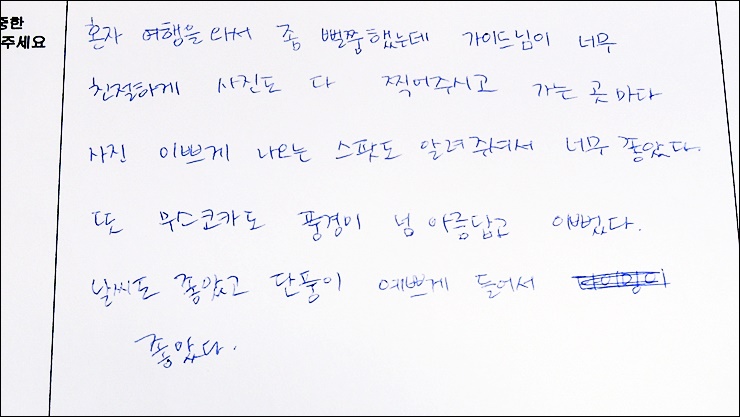 중한
주세요
혼자 여행을 와서 좀 뻘쭘했는데 가이드님이 너무
친절하게 사진도 다 찍어주시고 가는 곳마다
사진 이쁘게 나오는 스팟도 알려주셔서 너무 좋았다.
또 무스코카도 풍경이 넘 아름답고 이뻤다.
날씨도 좋았고 단풍이 예쁘게 들어서
좋았다.